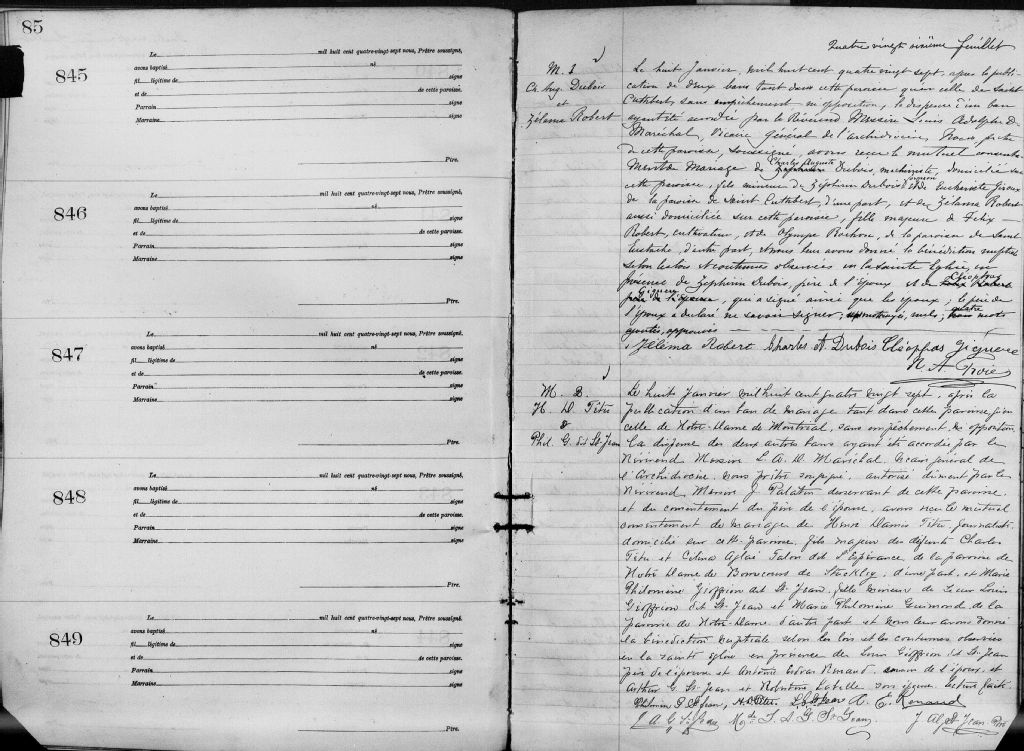 85
845
Le mil huit cent quatre-vingt-sept nous, Prêtre soussigné,
avons baptisé né
fil légitime de signe
et de de cette paroisse.
Parrain signe
Marraine signe
Ptre.
846
Le mil huit cent quatre-vingt-sept nous, Prêtre soussigné,
avons baptisé né
fil légitime de signe
et de de cette paroisse.
Parrain signe
Marraine signe
Ptre.
847
Le mil huit cent quatre-vingt-sept nous, Prêtre soussigné,
avons baptisé né
fil légitime de signe
et de de cette paroisse.
Parrain signe
Marraine signe
Ptre.
848
Le mil huit cent quatre-vingt-sept nous, Prêtre soussigné,
avons baptisé né
fil légitime de signe
et de de cette paroisse.
Parrain signe
Marraine signe
Ptre.
849
Le mil huit cent quatre-vingt-sept nous, Prêtre soussigné,
avons baptisé né
fil légitime de signe
et de de cette paroisse.
Parrain signe
Marraine signe
Ptre.
Quatre vingt sixième feuillet
M. 1
Ch. Aug. Dubois
et
Zélama Robert
Le huit Janvier, mil huit cent quatre vingt sept, après la publi-
cation de deux bans tant dans cette paroisse qu'en celle de Saint
Cuthbert, sans empêchement ou opposition, la dispense d'un ban
ayant été accordée par le Révérend Messire Louis Adolphe D.
Maréchal, Vicaire Général de l'archidiocèse, Nous, prêtre
de cette paroisse, soussigné, avons reçu le mutuel consente-
ment de Mariage de Charles Auguste Dubois, machiniste, domicilié sur
cette paroisse, fils mineur de Zéphirin Dubois et de Euchariste Giroux
de la paroisse de Saint Cuthbert, d'une part, et de Zélama Robert
aussi domiciliée sur cette paroisse, fille majeure de Félix
Robert, cultivateur, et de Olympe Rochon, de la paroisse de Saint
Eustache d'autre part, et nous leur avons donné la bénédiction nuptiale
selon les lois et coutumes observées en la Sainte Eglise, en
présence de Zéphirin Dubois, père de l'époux et de Cléophas
Giguère, qui a signé ainsi que les époux; le père de
l'époux a déclaré ne savoir signer; mots rayés, nuls; quatre mots
ajoutés, approuvés
Zélama Robert Charles A. Dubois Cléophas Giguere
N. A. Troie
M. 2.
H. D. Têtu
&
Phil. G. dit St. Jean
Le huit Janvier mil huit cent quatre vingt sept, après la
publication d'un ban de mariage tant dans cette paroisse qu'en
celle de Notre-Dame de Montréal, sans empêchement ou opposition,
la dispense des deux autres bans ayant été accordée par le
Révérend Messire L. A. D. Maréchal, Vicaire général de
l'Archidiocèse, nous prêtre soussigné, autorisé dûment par le
Révérend Messire J Palatin desservant de cette paroisse,
et du consentement du père de l'épouse, avons reçu le mutuel
consentement de mariage de Henri Damis Têtu, Journaliste
domicilié sur cette paroisse, fils majeur des défunts Charles
Têtu et Célina Aglaé Talon dit L'Espérance, de la paroisse de
Notre Dame de Bonsecours de Stuckley, d'une part, et Marie
Philomène Geoffrion dit St. Jean, fille mineure de Sieur Louis
Geoffrion dit St-Jean et Marie Philomène Guimond de la
paroisse de Notre-Dame d'autre part et nous leur avons donné
la bénédiction nuptiale selon les lois et les coutumes observées
en la sainte église en présence de Louis Geoffrion dit St-Jean
père de l'épouse et Antoine Renaud, de l'époux, et
Arthur G. St-Jean, et Labelle, soussignés. Lecture faite.
Philomène G. St Jean, H. D. Têtu. L. G. St Jean A. E. Renaud
J. A. G. St Jean, St Jean, J. Alp. St Jean Ptre